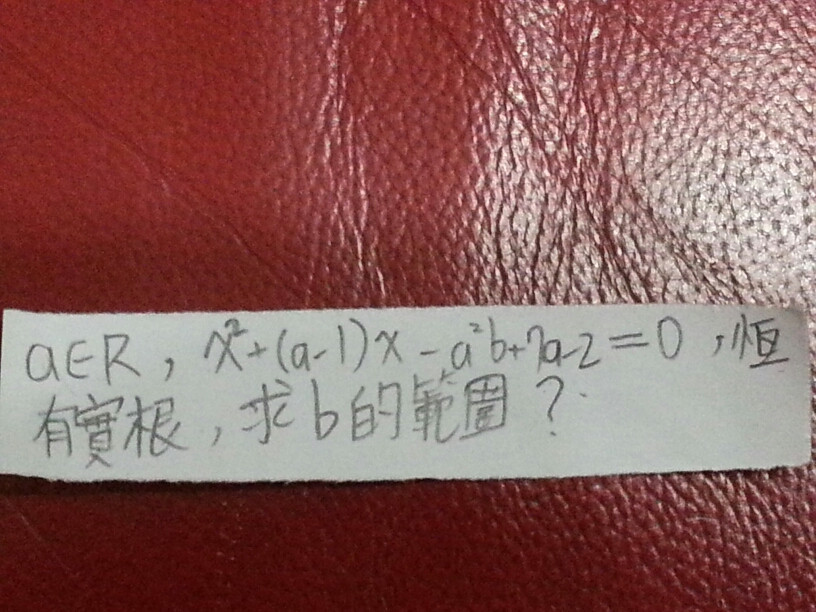 a∈R，x²+(a-1)x-a²b+7a-2=0，恒
有實根，求b的範圍？